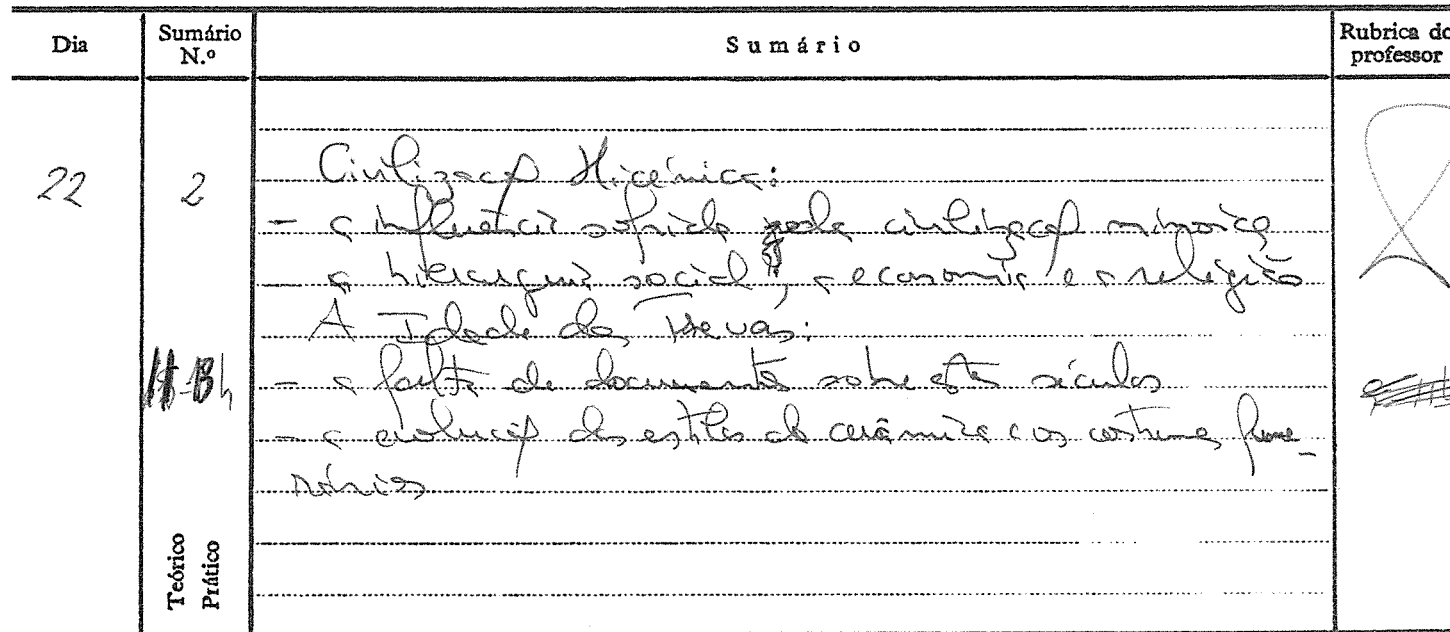 Dia
Sumário N.º
Sumário
Rubrica do professor
22
2
Civilização Micénica:
- a influência sofrida pela civilização minoica
- a hierarquia social, a economia e a religião
A Idade das Trevas:
- a falta de documentos sobre estes séculos
- a evolução dos estilos de cerâmica e os costumes fune-
rários
Teórico
Prático